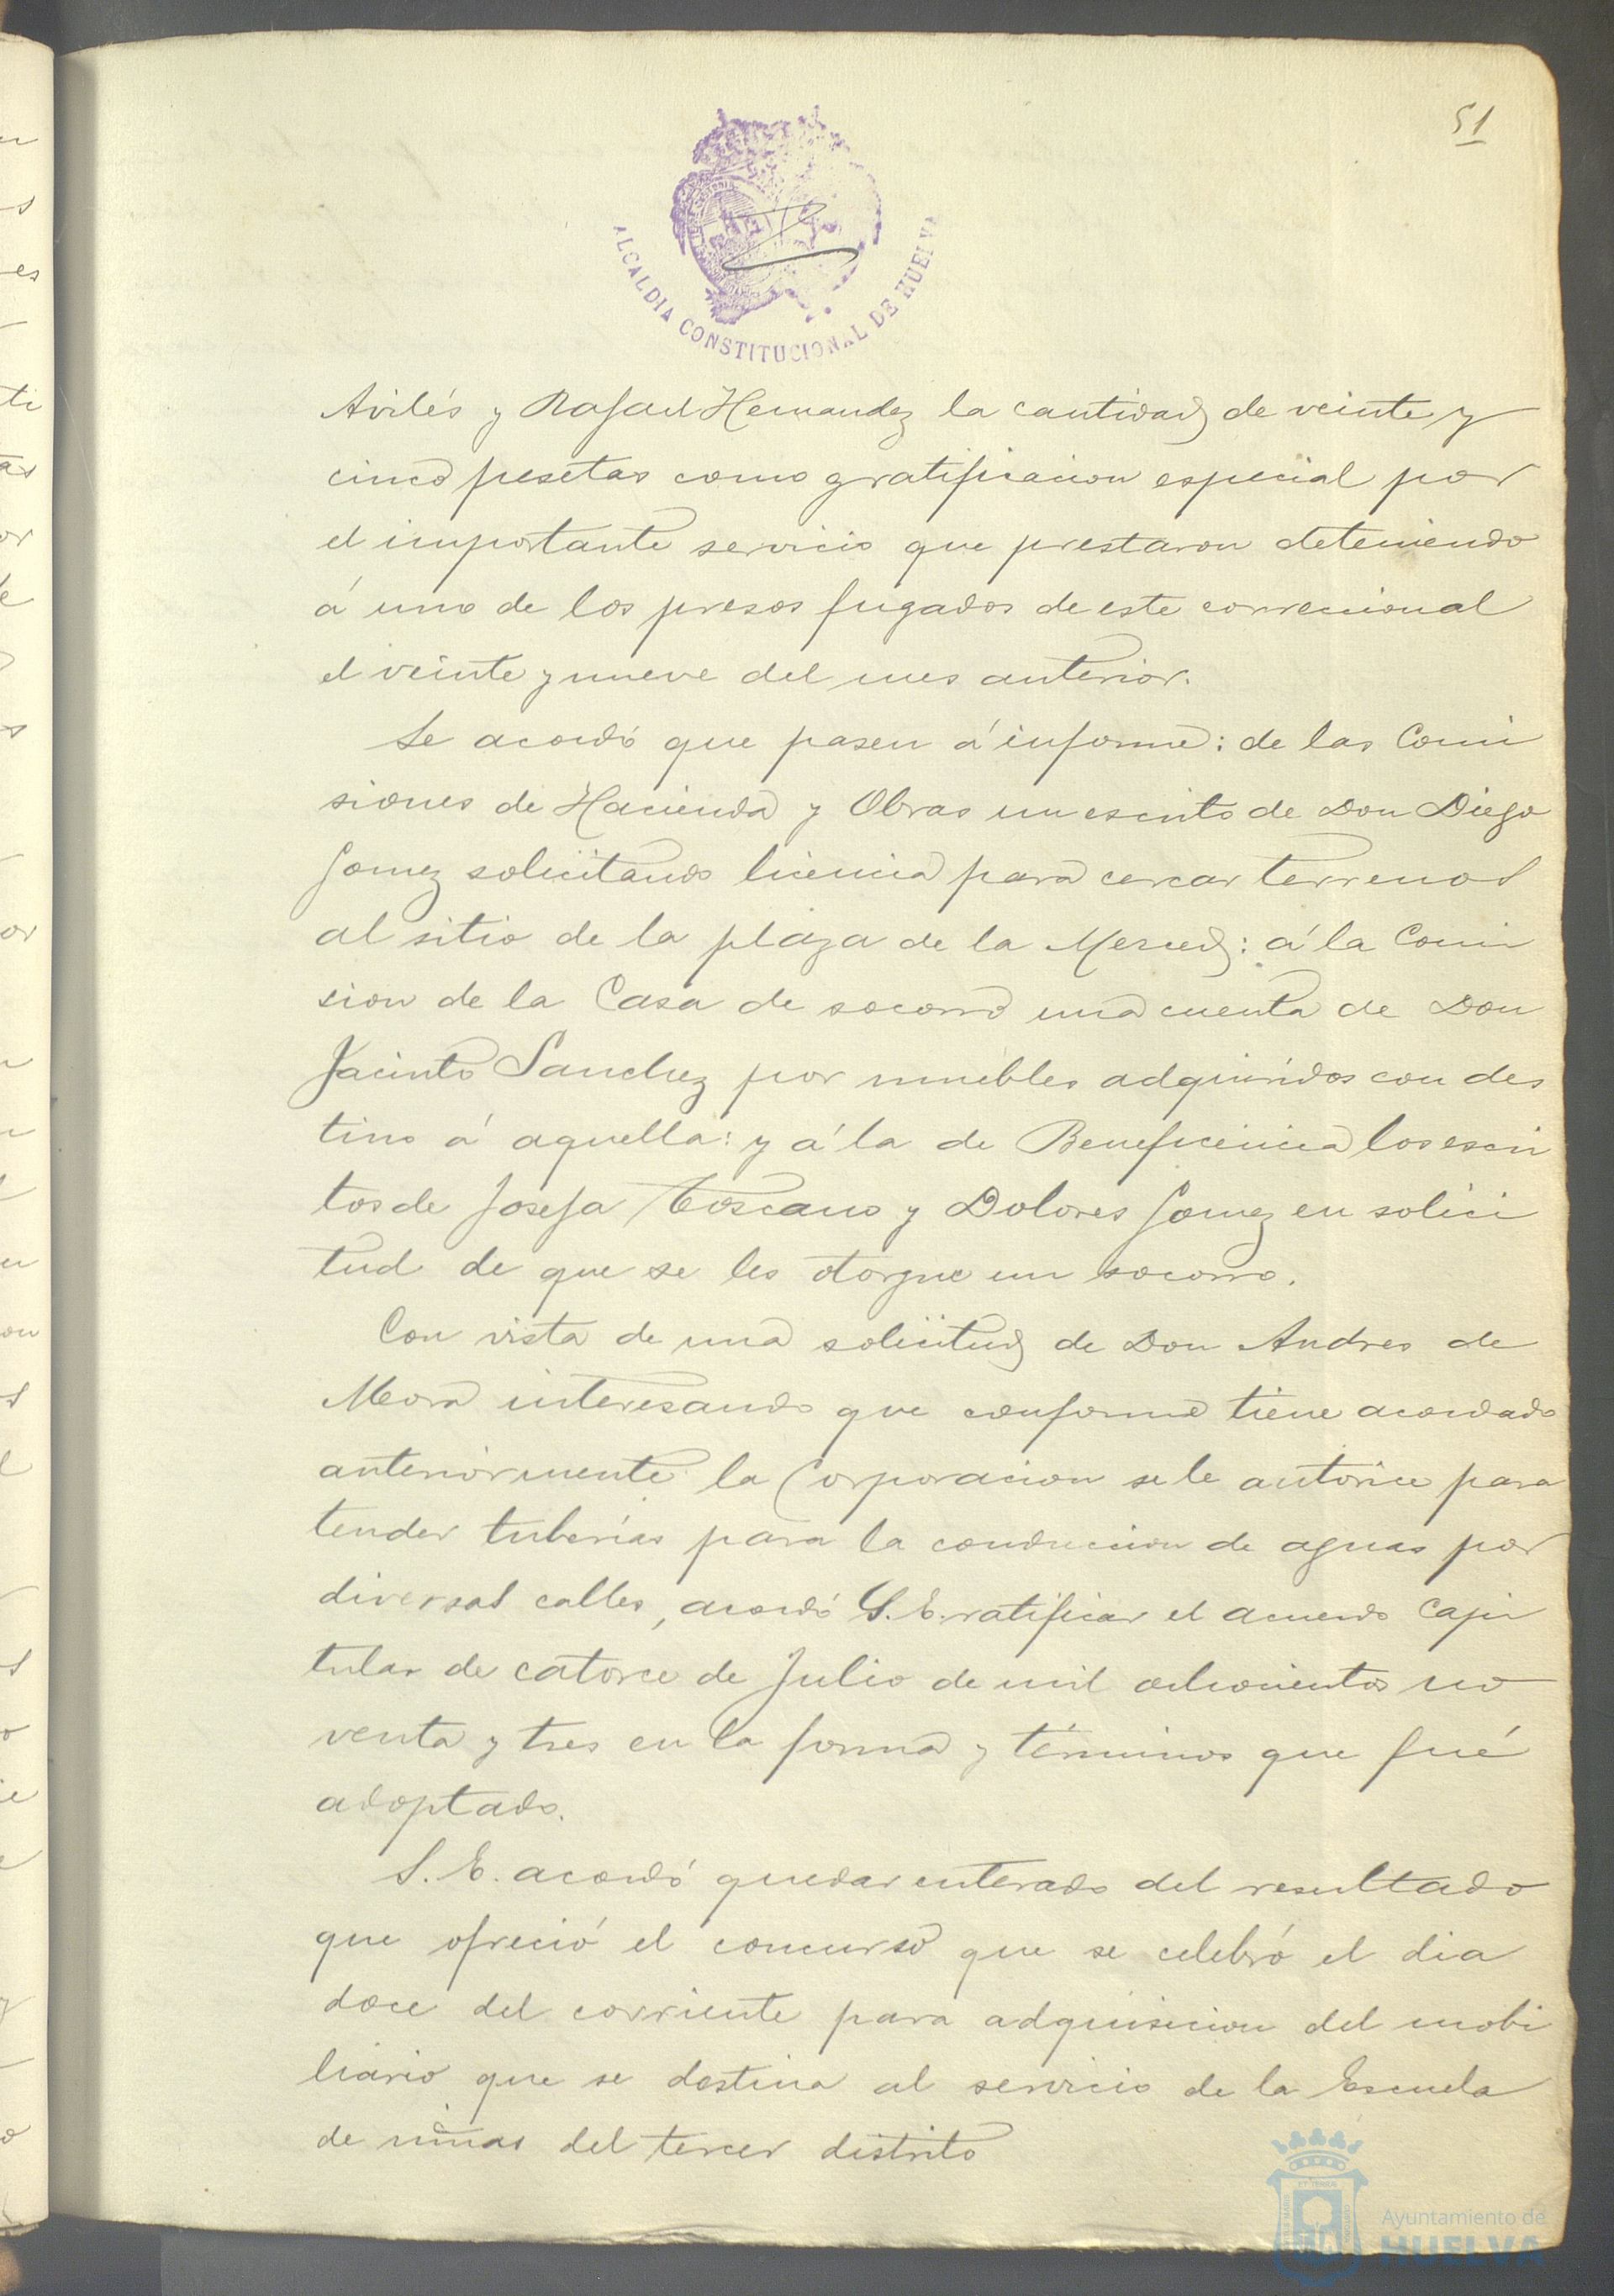 51
ALCALDIA CONSTITUCIONAL DE HUELVA
Avilés y Rafael Hernandez la cantidad de veinte y
cinco pesetas como gratificacion especial por
el importante servicio que prestaron deteniendo
á uno de los presos fugados de este correccional
el veinte y nueve del mes anterior.
Se acordó que pasen á informe: de las Comi
siones de Hacienda y Obras un escrito de Don Diego
Gomez solicitando licencia para cercar terrenos
al sitio de la plaza de la Merced: á la Comi
sion de la Casa de socorro una cuenta de Don
Jacinto Sanchez por muebles adquiridos con des
tino á aquella: y á la de Beneficencia los escri
tos de Josefa Toscano y Dolores Gomez en solici
tud de que se les otorgue un socorro.
Con vista de una solicitud de Don Andres de
Mora interesando que conforme tiene acordado
anteriormente la Corporacion se le autorice para
tender tuberias para la conduccion de aguas por
diversas calles, acordó S. E. ratificar el acuerdo Capi
tular de catorce de Julio de mil ochocientos no
venta y tres en la forma y términos que fué
adoptado.
S. E. acordó quedar enterado del resultado
que ofreció el concurso que se celebró el dia
doce del corriente para adquisicion del mobi
liario que se destina al servicio de la Escuela
de niñas del tercer distrito
Ayuntamiento de
HUELVA